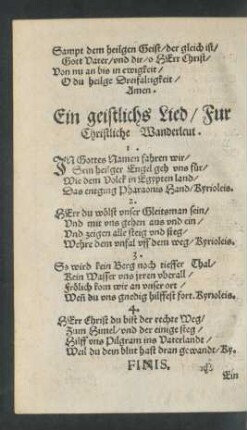 Sampt dem heilgen Geist/ der gleich ist/
Gott Vater/ vnd dir/ o HErr Christ/
Von nu an bis in ewigkeit/
O du heilge Dreifaltigkeit/
Amen.
Ein geistlichs Lied/ Fur
Christliche Wanderleut.
1.
IN Gottes Namen fahren wir/
Sein heilger Engel geh vns für/
Wie dem Volck in Egipten land/
Das entging Pharaonis Hand/ Kyrioleis.
2.
HErr du wölst vnser Gleitsman sein/
Vnd mit vns gehen aus vnd ein/
Vnd zeigen alle steig vnd steg/
Wehre dem vnfal vff dem weg/ Kyrioleis.
3.
So wird kein Berg noch tieffer Thal/
Kein Wasser vns jrren vberall/
Frölich kom wir an vnser ort/
Wen̄ du vns gnedig hilffest fort. Kyrioleis.
4.
HErr Christ du bist der rechte Weg/
Zum Himel/ vnd der einige steg/
Hilff vns Pilgram ins Vaterlandt/
Weil du dein blut hast dran gewandt/ Ky.
FINIS.
Ein